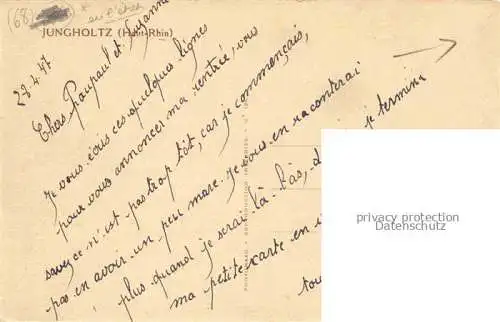 (68)
JUNGHOLTZ (Haut-Rhin)
28.4.47
Chers Poupaul et Suzanne
Je vous écris ces quelques lignes
pour vous annoncer ma rentrée, vous
savez ce n'est pas trop tôt, car je commençais,
pas en avoir un peu marre. Je vous en raconterai
plus quand je serai là-bas, termine
ma petite carte en
tou
privacy protection
Datenschutz